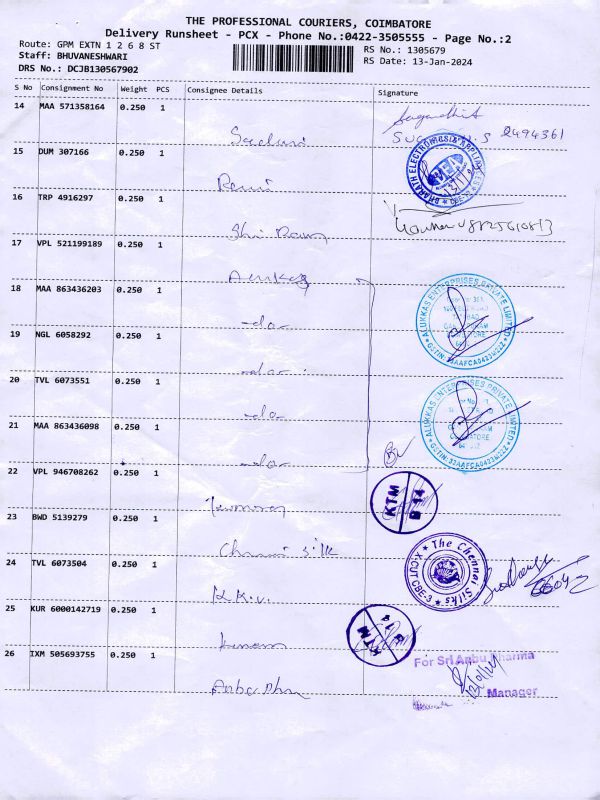 THE PROFESSIONAL COURIERS, COIMBATORE
Delivery Runsheet - PCX - Phone No.:0422-3505555 - Page No.:2
Route: GPM EXTN 1 2 6 8 ST
RS No.: 1305679
Staff: BHUVANESHWARI
RS Date: 13-Jan-2024
DRS No.: DCJB130567902
S No Consignment No Weight PCS Consignee Details Signature
14 MAA 571358164 0.250 1
2494361
15 DUM 307166 0.250 1
BHARATH ELECTRONICS & APPLIANCES
16 TRP 4916297 0.250 1
Shri Ram
17 VPL 521199189 0.250 1
18 MAA 863436203 0.250 1
-do-
ALUKKAS ENTERPRISES PRIVATE LIMITED
GSTIN-33AAFCA0433M2ZZ
19 NGL 6058292 0.250 1
-do-
20 TVL 6073551 0.250 1
-do-
ALUKKAS ENTERPRISES PRIVATE LIMITED
GSTIN-33AAFCA0433M2ZZ
21 MAA 863436098 0.250 1
-do-
22 VPL 946708262 0.250 1
KTM
B 14
23 BWD 5139279 0.250 1
Chennai Silk
The Chennai Silks
X-CUT CBE-3
24 TVL 6073504 0.250 1
K.K.V.
25 KUR 6000142719 0.250 1
KTM
26 IXM 505693755 0.250 1
For Sri Anbu Pharma
Manager